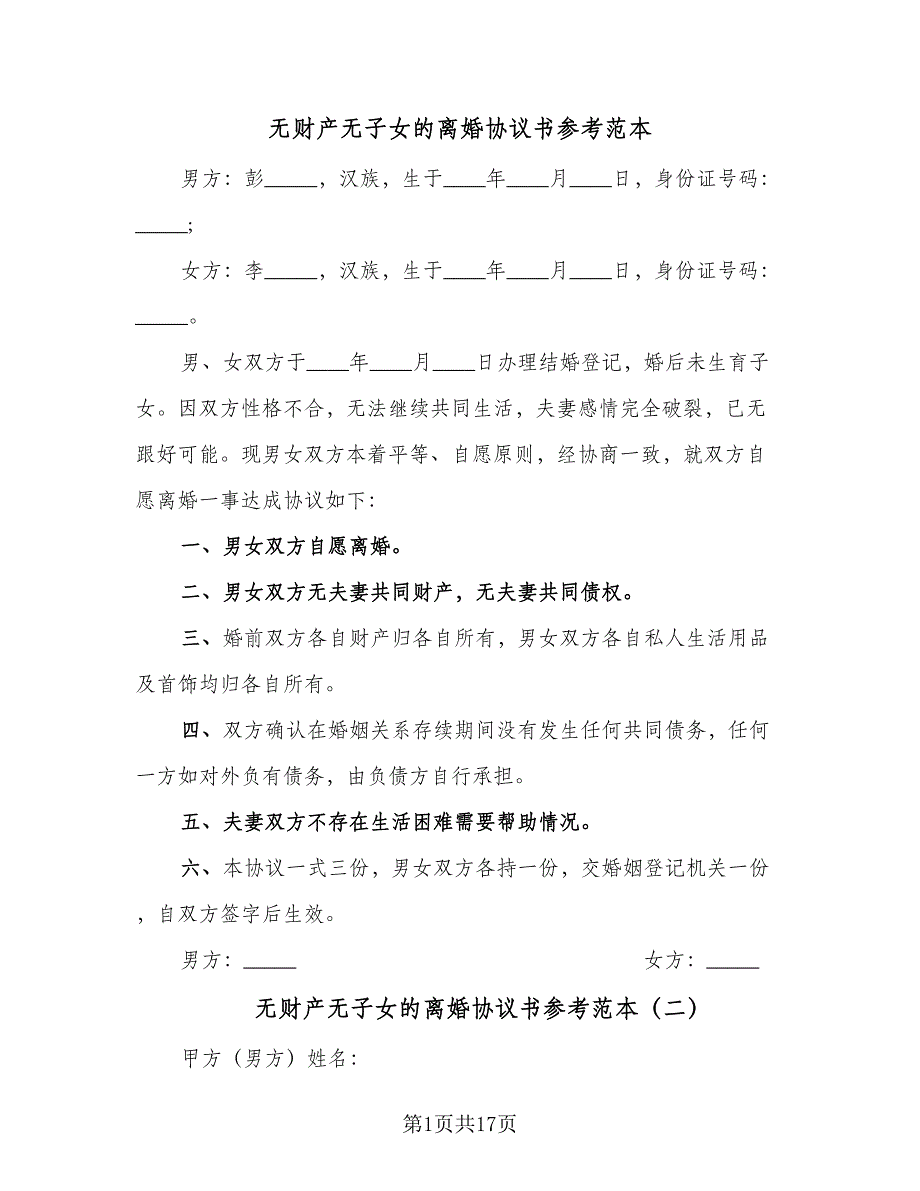 无财产无子女的离婚协议书参考范本
男方：彭_____，汉族，生于____年____月____日，身份证号码：
_____;
女方：李_____，汉族，生于____年____月____日，身份证号码：
_____。
男、女双方于____年____月____日办理结婚登记，婚后未生育子
女。因双方性格不合，无法继续共同生活，夫妻感情完全破裂，已无
跟好可能。现男女双方本着平等、自愿原则，经协商一致，就双方自
愿离婚一事达成协议如下：
一、男女双方自愿离婚。
二、男女双方无夫妻共同财产，无夫妻共同债权。
三、婚前双方各自财产归各自所有，男女双方各自私人生活用品
及首饰均归各自所有。
四、双方确认在婚姻关系存续期间没有发生任何共同债务，任何
一方如对外负有债务，由负债方自行承担。
五、夫妻双方不存在生活困难需要帮助情况。
六、本协议一式三份，男女双方各持一份，交婚姻登记机关一份
，自双方签字后生效。
男方：_____ 女方：_____
无财产无子女的离婚协议书参考范本（二）
甲方（男方）姓名：
第1页共17页